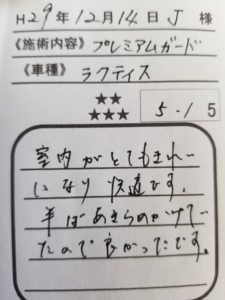 H29年12月14日 J 様
《施術内容》プレミアムガード
《車種》ラクティス
★★
★★★
5.1 5
室内がとてもきれー
になり快適です。
半ばあきらめかけて
たので良かったです。